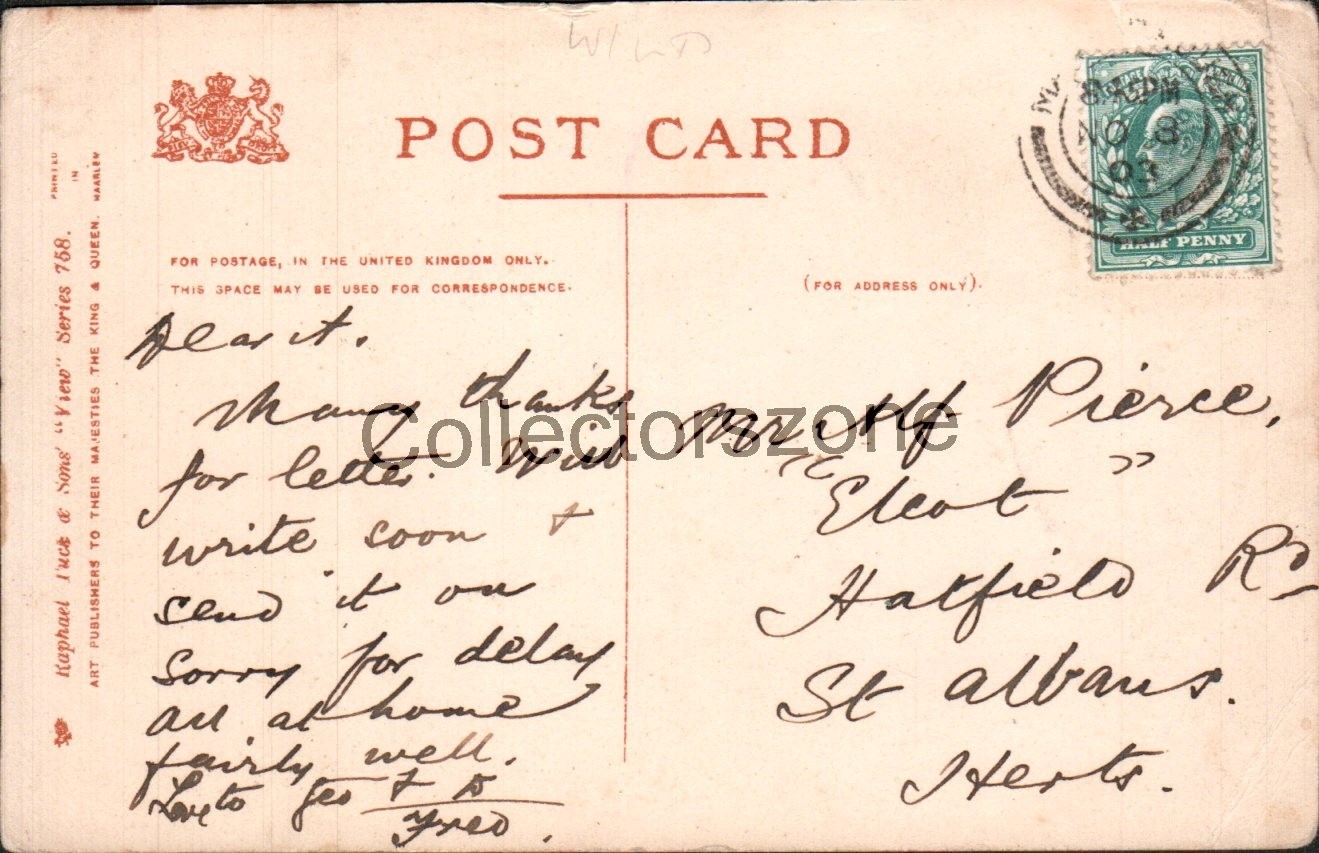 WILTS
POST CARD
FOR POSTAGE, IN THE UNITED KINGDOM ONLY.
THIS SPACE MAY BE USED FOR CORRESPONDENCE.
(FOR ADDRESS ONLY).
PRINTED
IN
HAARLEM
Raphael Tuck & Sons' "View" Series 758.
ART PUBLISHERS TO THEIR MAJESTIES THE KING & QUEEN.
PM
NO 8
03
HALF PENNY
Dear A.
Many thanks
for letter. Will
write soon &
send it on
Sorry for delay
all at home
fairly well.
Love to Geo &
Fred.
Mr Alf Pierce,
"Elcot"
Hatfield Rd
St Albans.
Herts.
Collectorszone